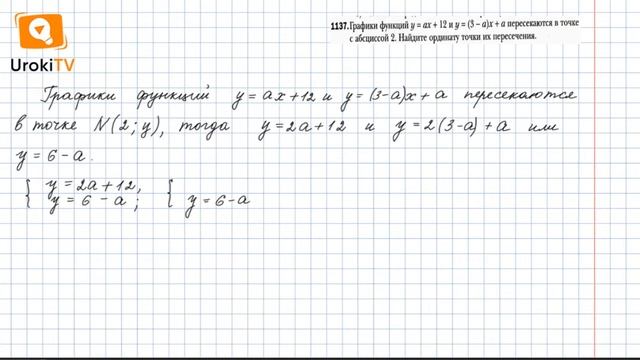 1137. Графики функций y = ax + 12 и y = (3 – a)x + a пересекаются в точке
с абсциссой 2. Найдите ординату точки их пересечения.
UrokiTV
Графики функций y = ax + 12 и y = (3-a)x + a пересекаются
в точке N(2; y), тогда y = 2a + 12 и y = 2(3-a) + a или
y = 6 - a.
{ y = 2a + 12, { 
y = 6 - a; y = 6 - a